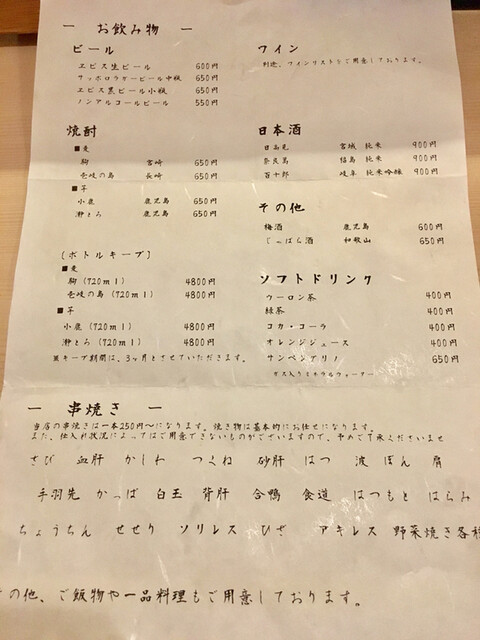 一 お飲み物 一
ビール
ヱビス生ビール 600円
サッポロラガービール中瓶 650円
ヱビス黒ビール小瓶 650円
ノンアルコールビール 550円
ワイン
別途、ワインリストをご用意しております。
焼酎
■麦
駒 宮崎 650円
壱岐の島 長崎 650円
■芋
小鹿 鹿児島 650円
瀞とろ 鹿児島 650円
日本酒
日高見 宮城 純米 900円
奈良萬 福島 純米 900円
百十郎 岐阜 純米吟醸 900円
その他
梅酒 鹿児島 600円
じゃばら酒 和歌山 650円
[ボトルキープ]
■麦
駒(720ml) 4800円
壱岐の島(720ml) 4800円
■芋
小鹿(720ml) 4800円
瀞とろ(720ml) 4800円
キープ期間は、3ヶ月とさせていただきます。
ソフトドリンク
ウーロン茶 400円
緑茶 400円
コカ・コーラ 400円
オレンジジュース 400円
サンペレグリノ 650円
ガス入りミネラルウォーター
一 串焼き 一
当店の串焼きは一本250円〜になります。焼き物は基本的にお任せになります。
また、仕入れ状況によってはご用意できないものがございますので、予めご了承くださいませ
さび 血肝 かしわ つくね 砂肝 はつ 波 ぼん 肩
手羽先 かっぱ 白玉 背肝 合鴨 食道 はつもと はらみ
ちょうちん せせり ソリレス ひざ アキレス 野菜焼き各種
の他、ご飯物や一品料理もご用意しております。